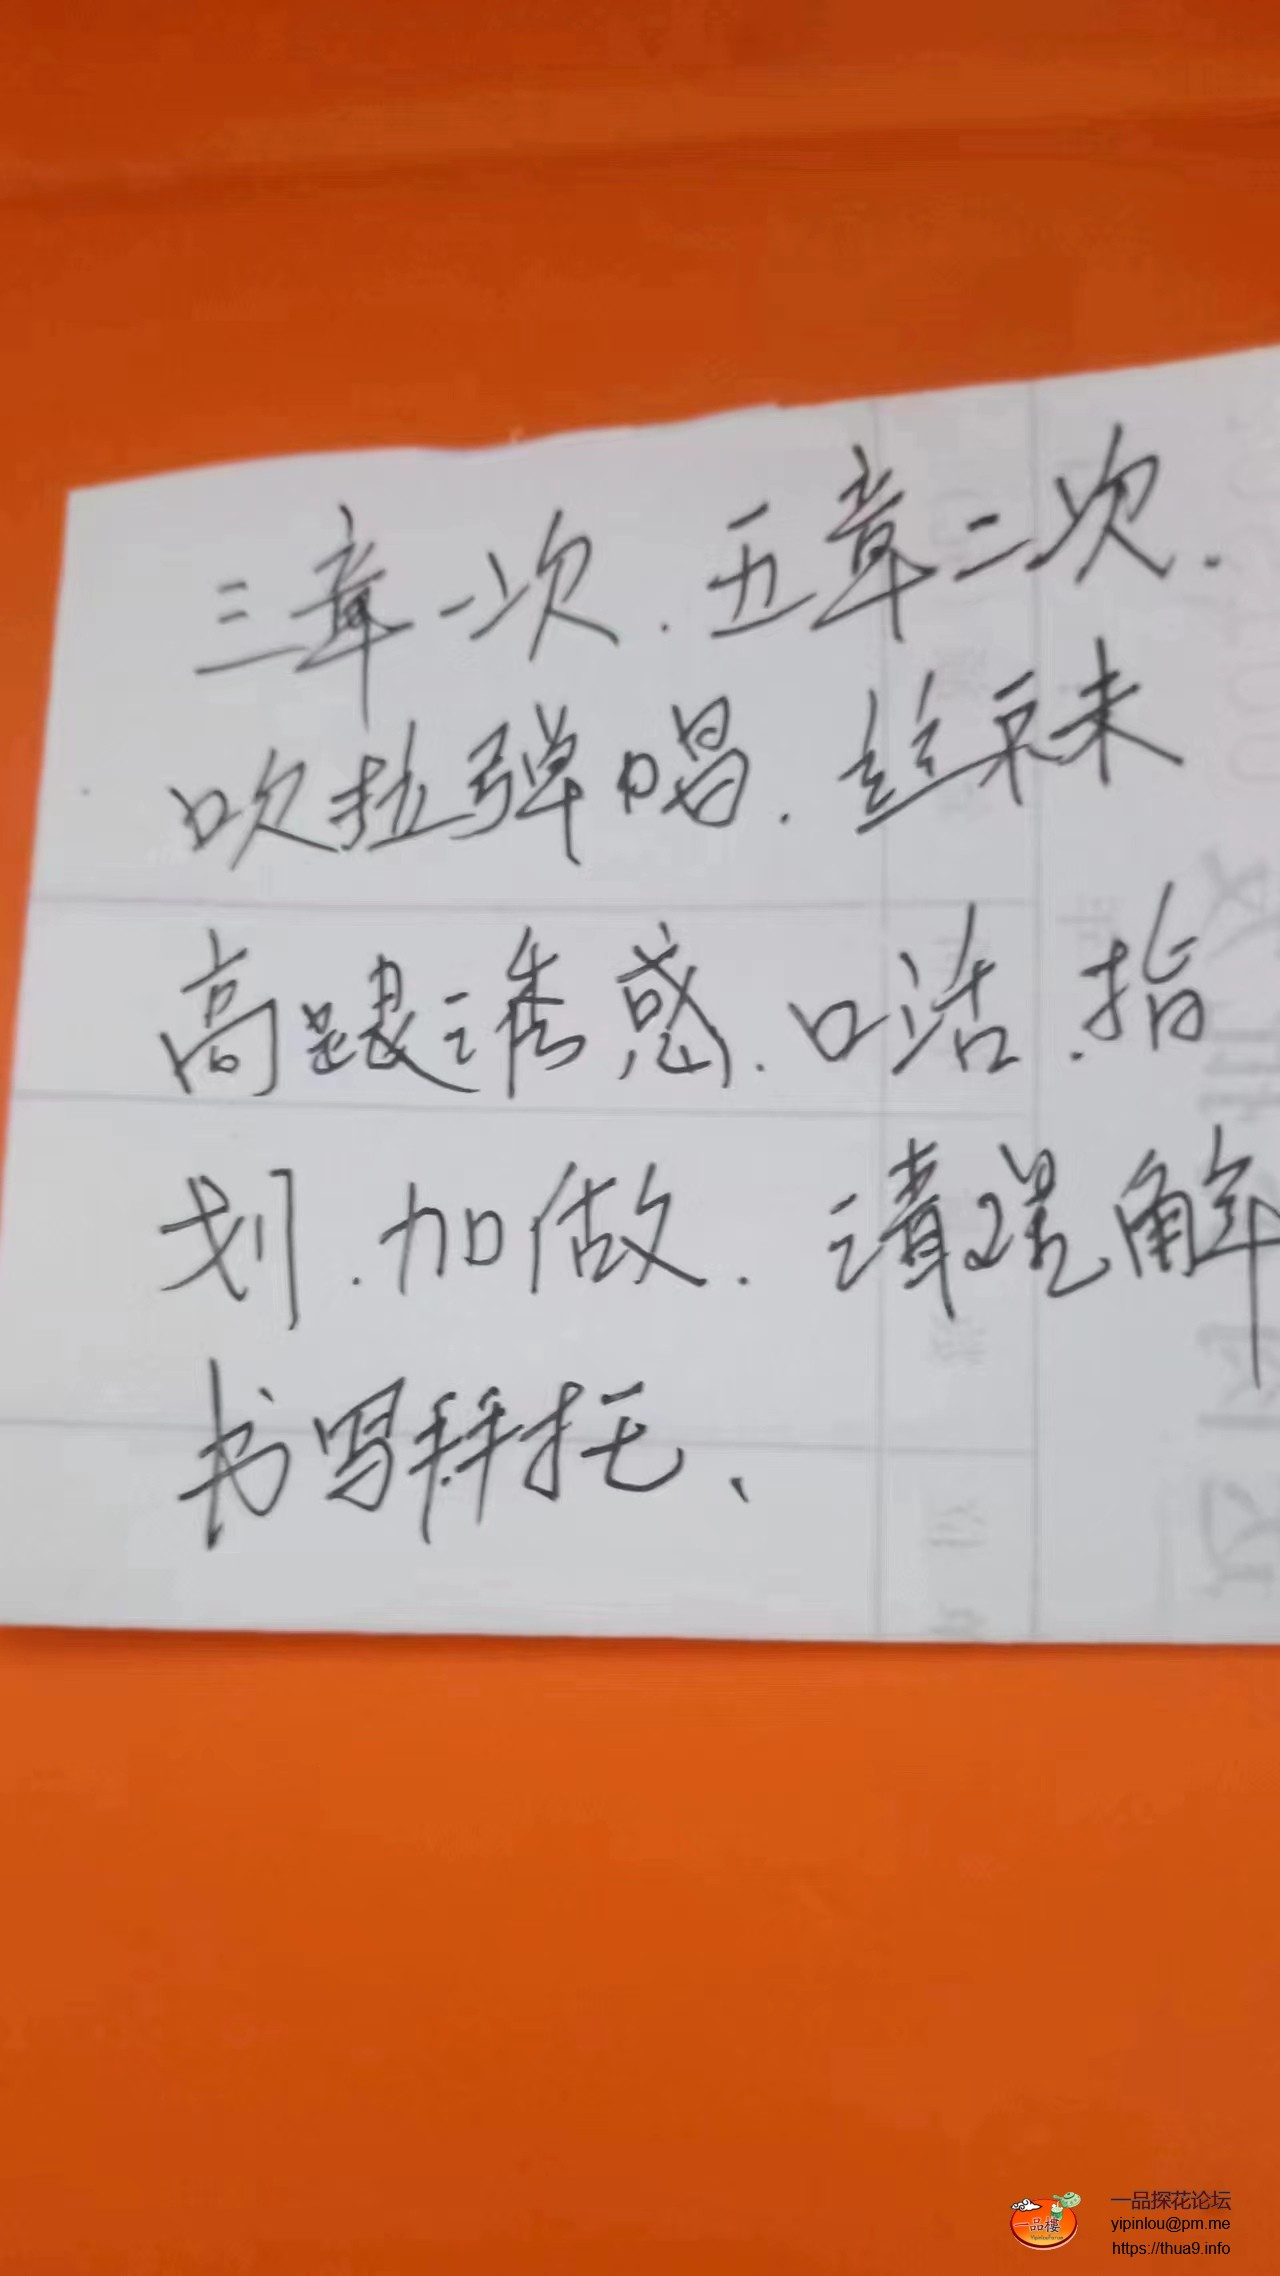 三章一次.五章二次.
吹拉弹唱.丝袜
高跟诱惑.口活.指
划.加做.请理解
书写拜托、
一品樓
一品探花论坛
yipinlou@pm.me
https://thua9.info